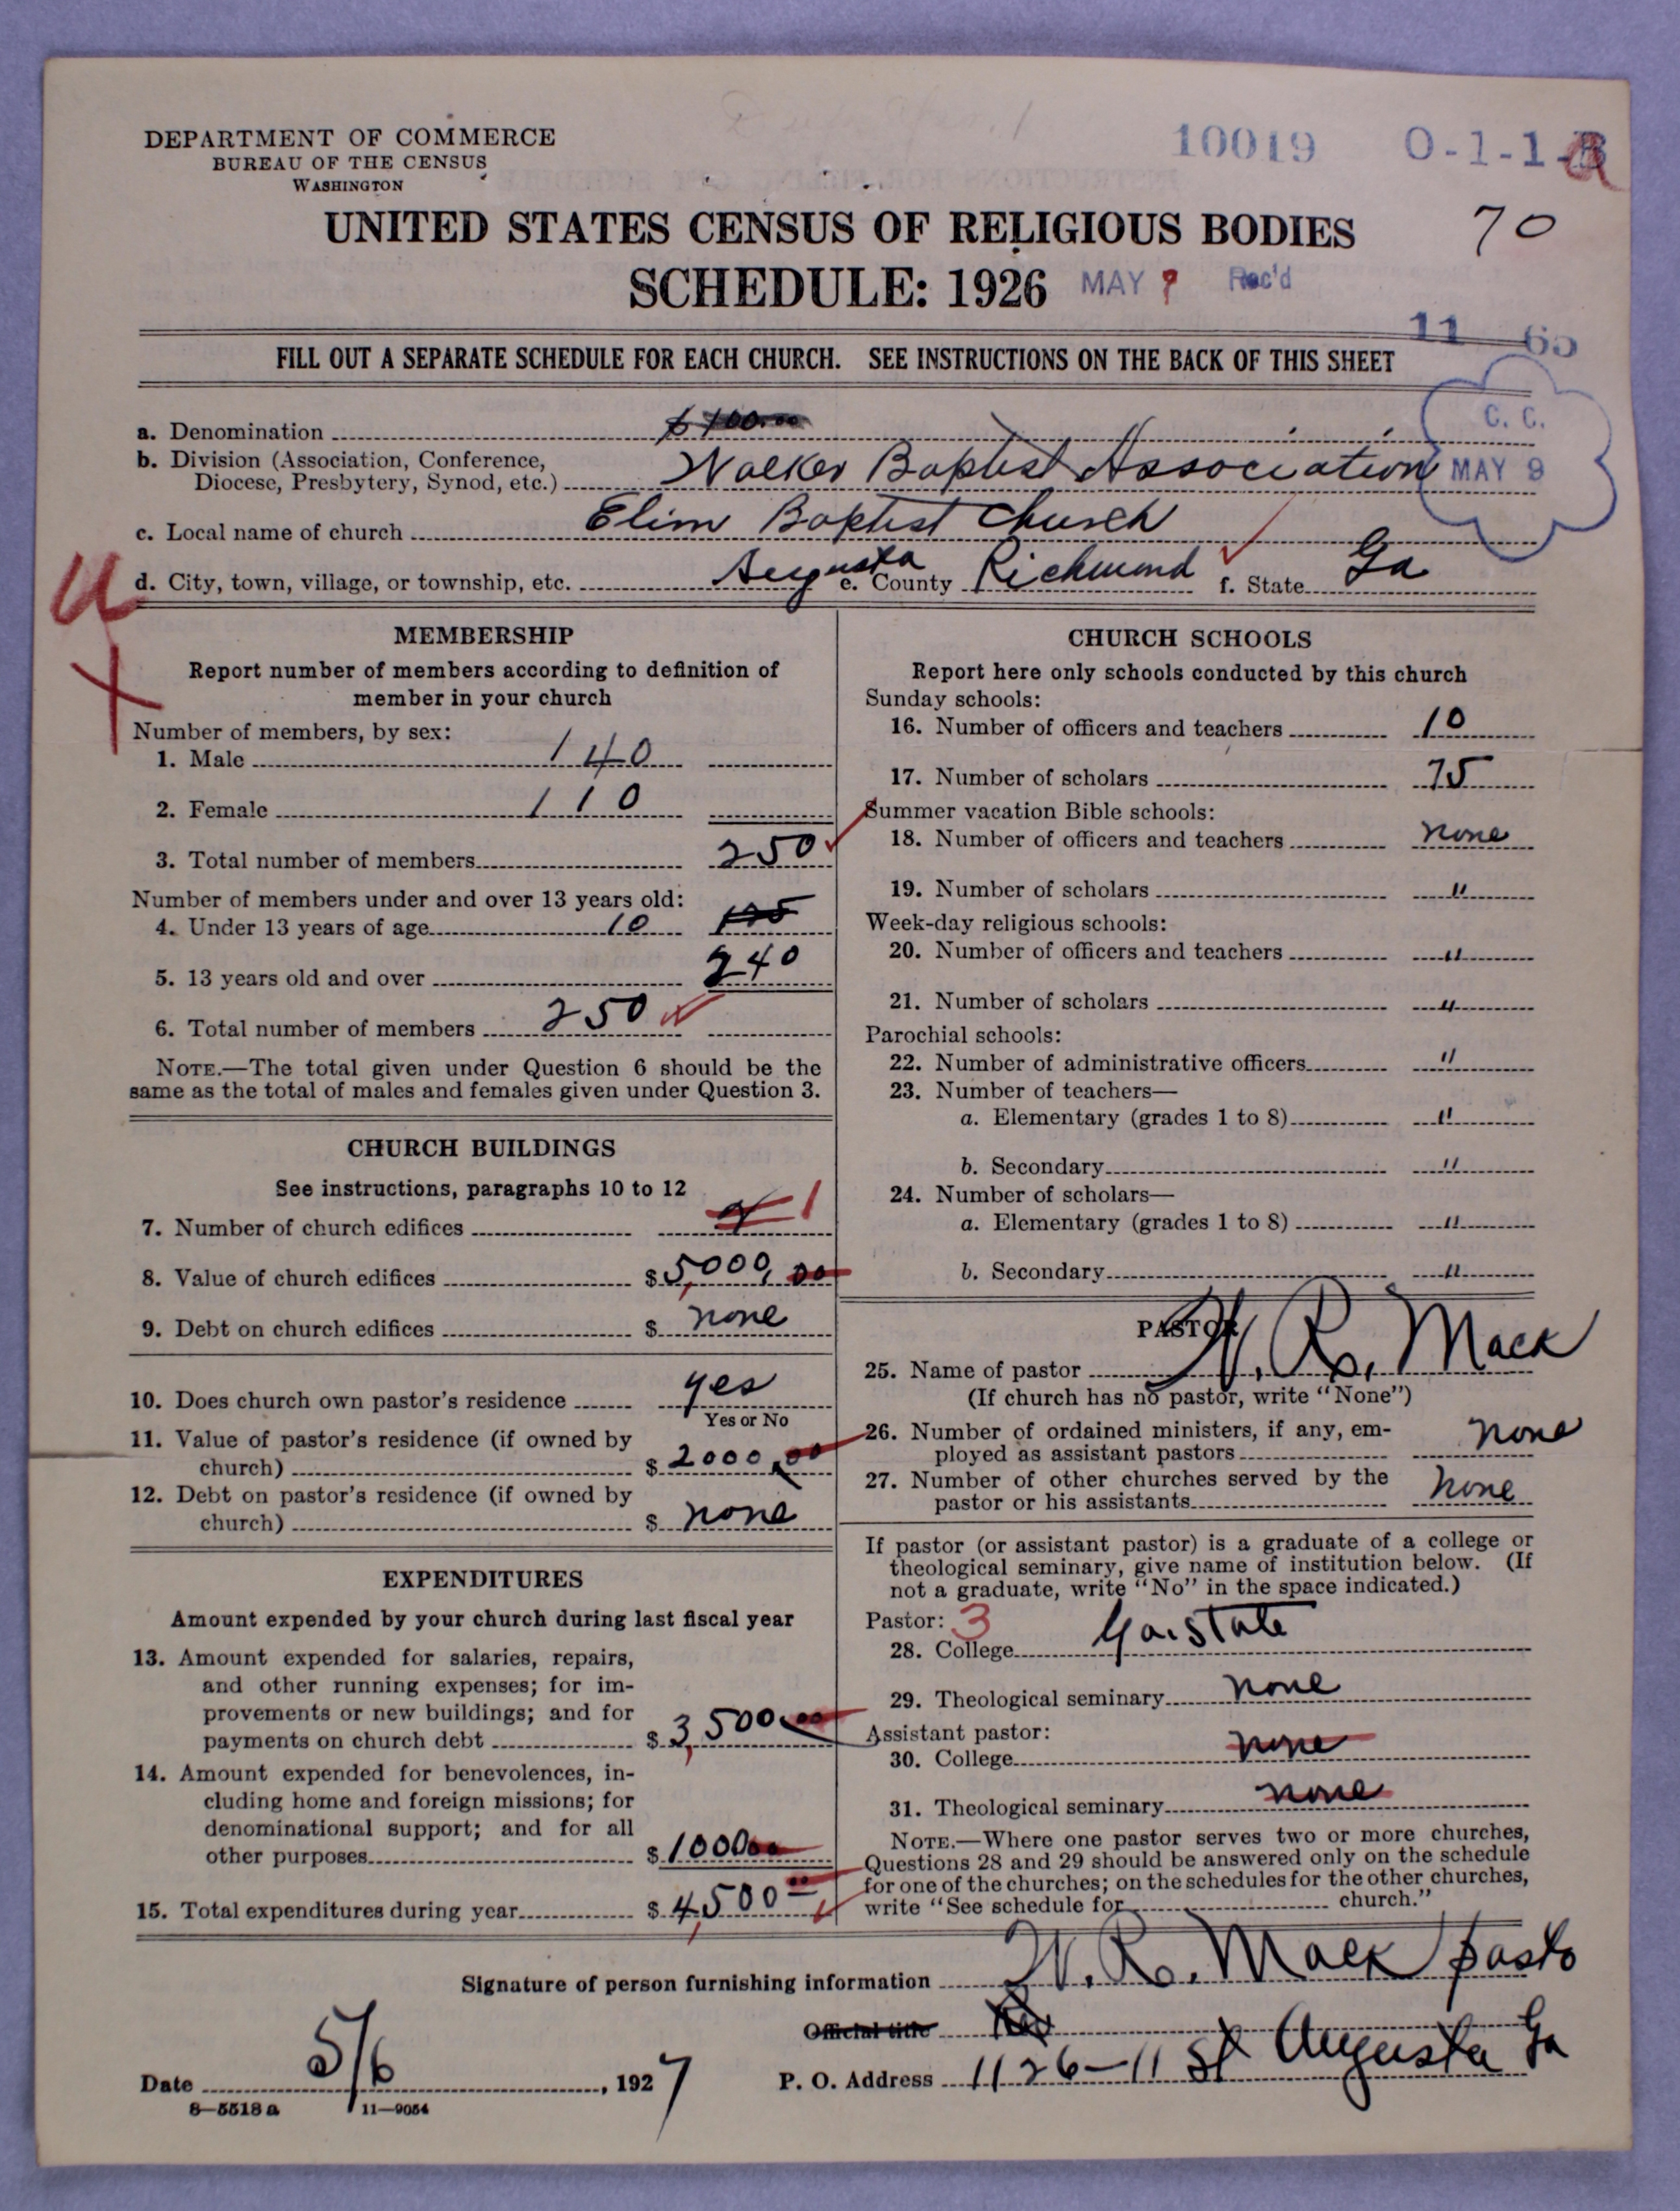 DEPARTMENT OF COMMERCE
BUREAU OF THE CENSUS
WASHINGTON
10019 O-1-1-
UNITED STATES CENSUS OF RELIGIOUS BODIES
70
SCHEDULE: 1926
MAY 9 Rec'd
11 65
FILL OUT A SEPARATE SCHEDULE FOR EACH CHURCH. SEE INSTRUCTIONS ON THE BACK OF THIS SHEET
C. C.
MAY 9
a. Denomination $100.00
b. Division (Association, Conference,
Diocese, Presbytery, Synod, etc.) Walker Baptist Association
c. Local name of church Elim Baptist Church
d. City, town, village, or township, etc. Augusta e. County Richmond f. State Ga
MEMBERSHIP
Report number of members according to definition of
member in your church
Number of members, by sex:
1. Male 140
2. Female 110
3. Total number of members 250
Number of members under and over 13 years old:
4. Under 13 years of age 10
5. 13 years old and over 240
6. Total number of members 250
NOTE.—The total given under Question 6 should be the
same as the total of males and females given under Question 3.
CHURCH BUILDINGS
See instructions, paragraphs 10 to 12
7. Number of church edifices 1
8. Value of church edifices $ 5,000,00
9. Debt on church edifices $ none
10. Does church own pastor's residence yes
Yes or No
11. Value of pastor's residence (if owned by
church) $ 2000.00
12. Debt on pastor's residence (if owned by
church) $ none
EXPENDITURES
Amount expended by your church during last fiscal year
13. Amount expended for salaries, repairs,
and other running expenses; for im-
provements or new buildings; and for
payments on church debt $ 3,500.00
14. Amount expended for benevolences, in-
cluding home and foreign missions; for
denominational support; and for all
other purposes $ 1000.00
15. Total expenditures during year $ 4,500 00
CHURCH SCHOOLS
Report here only schools conducted by this church
Sunday schools:
16. Number of officers and teachers 10
17. Number of scholars 75
Summer vacation Bible schools:
18. Number of officers and teachers none
19. Number of scholars "
Week-day religious schools:
20. Number of officers and teachers "
21. Number of scholars "
Parochial schools:
22. Number of administrative officers "
23. Number of teachers—
a. Elementary (grades 1 to 8) "
b. Secondary "
24. Number of scholars—
a. Elementary (grades 1 to 8) "
b. Secondary "
PASTOR
25. Name of pastor W. R. Mack
(If church has no pastor, write "None")
26. Number of ordained ministers, if any, em-
ployed as assistant pastors none
27. Number of other churches served by the
pastor or his assistants none
If pastor (or assistant pastor) is a graduate of a college or
theological seminary, give name of institution below. (If
not a graduate, write "No" in the space indicated.)
Pastor: 3
28. College Ga. State
29. Theological seminary none
Assistant pastor:
30. College none
31. Theological seminary none
NOTE.—Where one pastor serves two or more churches,
Questions 28 and 29 should be answered only on the schedule
for one of the churches; on the schedules for the other churches,
write "See schedule for church."
Signature of person furnishing information W. R. Mack pasto
Official title
Date 5/6, 1927
P. O. Address 1126-11 St Augusta Ga
8—5518 a 11—9054